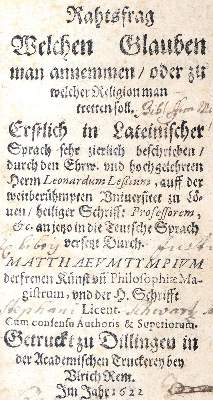 Rahtsfrag
Welchen Glauben
man annemmen / oder zu
welcher Religion man
tretten soll.
Erstlich in Lateinischer
Sprach sehr zierlich beschriben /
durch den Ehrw. vnd hochgelehrten
Herrn Leonardum Lessium, auff der
weitberühmpten Vniuersitet zu Lö-
uen / heiliger Schrifft Professorem,
&c. an jetzo in die Teutsche Sprach
versetzt Durch
MATTHAEVM TYMPIVM
der freyen Künst vñ Philosophiæ Ma-
gistrum, vnd der H. Schrifft
Licent.
Cum consensu Authoris & Superiorum.
Getruckt zu Dillingen in
der Academischen Truckerey bey
Vlrich Rem.
Im Jahr 1622